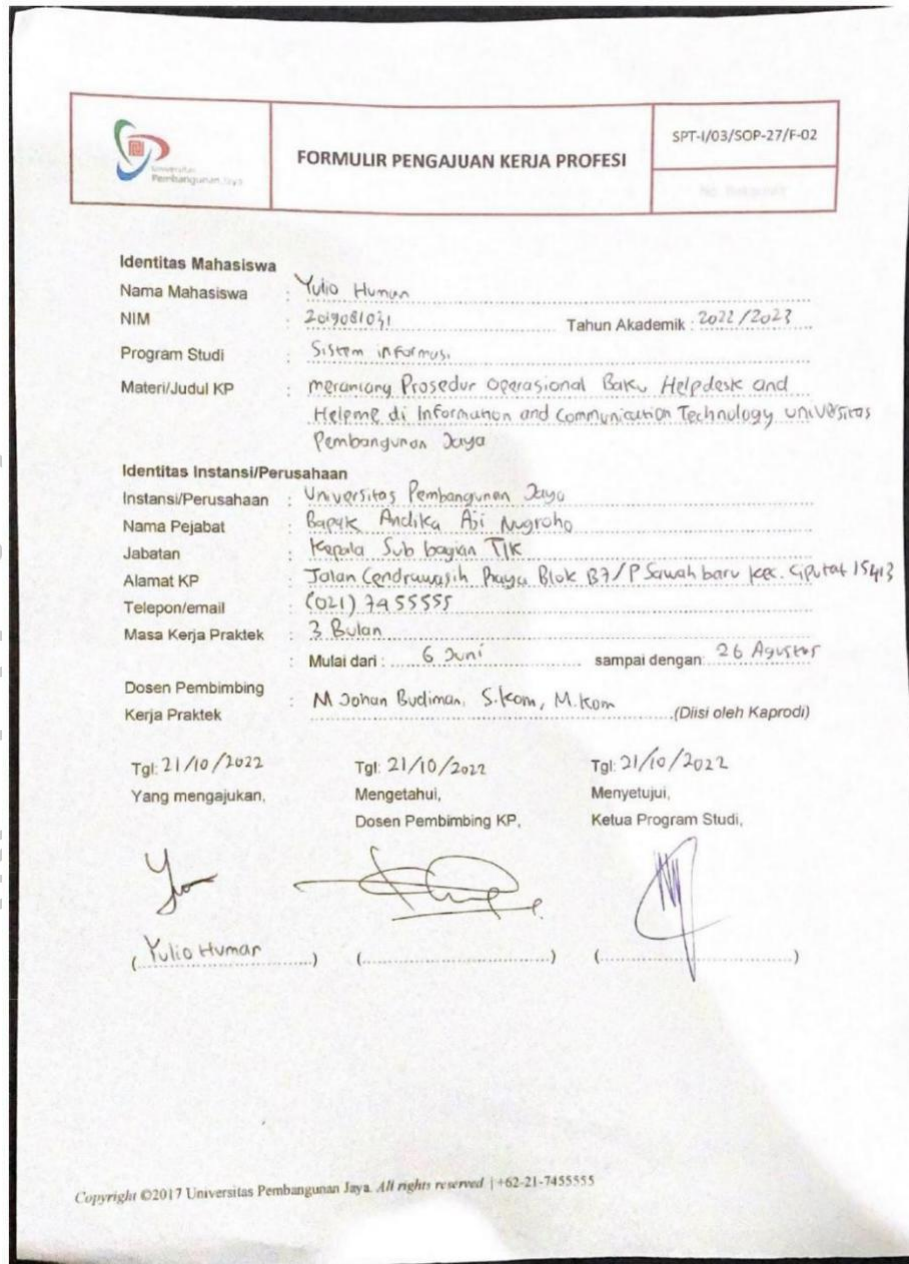 Universitas
Pembangunan Jaya
FORMULIR PENGAJUAN KERJA PROFESI
SPT-I/03/SOP-27/F-02
Identitas Mahasiswa
Nama Mahasiswa : Yulio Human
NIM : 2019081031 Tahun Akademik : 2022/2023
Program Studi : Sistem informasi
Materi/Judul KP : merancang Prosedur Operasional Baku Helpdesk and
Helpme di Information and Communication Technology universitas
Pembangunan Jaya
Identitas Instansi/Perusahaan
Instansi/Perusahaan : Universitas Pembangunan Jaya
Nama Pejabat : Bapak Andika Aji Nugroho
Jabatan : Kepala Sub bagian TIK
Alamat KP : Jalan Cendrawasih Raya Blok B7/P Sawah baru kec. Ciputat 15413
Telepon/email : (021) 7455555
Masa Kerja Praktek : 3 Bulan
: Mulai dari : 6 Juni sampai dengan: 26 Agustus
Dosen Pembimbing
Kerja Praktek : M Johan Budiman, S.kom, M.kom (Diisi oleh Kaprodi)
Tgl: 21/10/2022 Tgl: 21/10/2022 Tgl: 21/10/2022
Yang mengajukan, Mengetahui, Menyetujui,
Dosen Pembimbing KP, Ketua Program Studi,
(Yulio Humar) (......) (......)
Copyright ©2017 Universitas Pembangunan Jaya. All rights reserved | +62-21-7455555